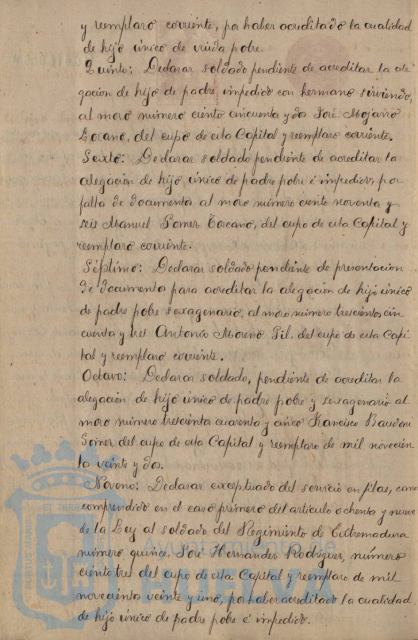 y reemplazo corriente, por haber acreditado la cualidad
de hijo único de viuda pobre.
Quinto: Declarar soldado pendiente de acreditar la ale-
gación de hijo de padre impedido con hermano sirviendo,
al mozo número ciento cincuenta y dos José Mojarro
Lozano, del cupo de esta Capital y reemplazo corriente.
Sexto: Declarar soldado pendiente de acreditar la
alegación de hijo único de padre pobre é impedido, por
falta de documentos al mozo número ciento noventa y
seis Manuel Gomez Toscano, del cupo de esta Capital y
reemplazo corriente.
Séptimo: Declarar soldado pendiente de presentacion
de documentos para acreditar la alegación de hijo único
de padre pobre sexagenario, al mozo número trescientos cin
cuenta y tres Antonio Moreno Gil, del cupo de esta Capi
tal y reemplazo corriente.
Octavo: Declarar soldado, pendiente de acreditar la
alegación de hijo único de padre pobre y sexagenario al
mozo número trescientos cuarenta y cinco Francisco
Gomez del cupo de esta Capital y reemplazo de mil novecien
tos veinte y dos.
Noveno: Declarar exceptuado del servicio en filas, como
comprendido en el caso primero del artículo ochenta y nueve
de la Ley al soldado del Regimiento de Extremadura
número quince, José Hernandez Rodríguez, número
ciento tres del cupo de esta Capital y reemplazo de mil
novecientos veinte y uno, por haber acreditado la cualidad
de hijo único de padre pobre é impedido.